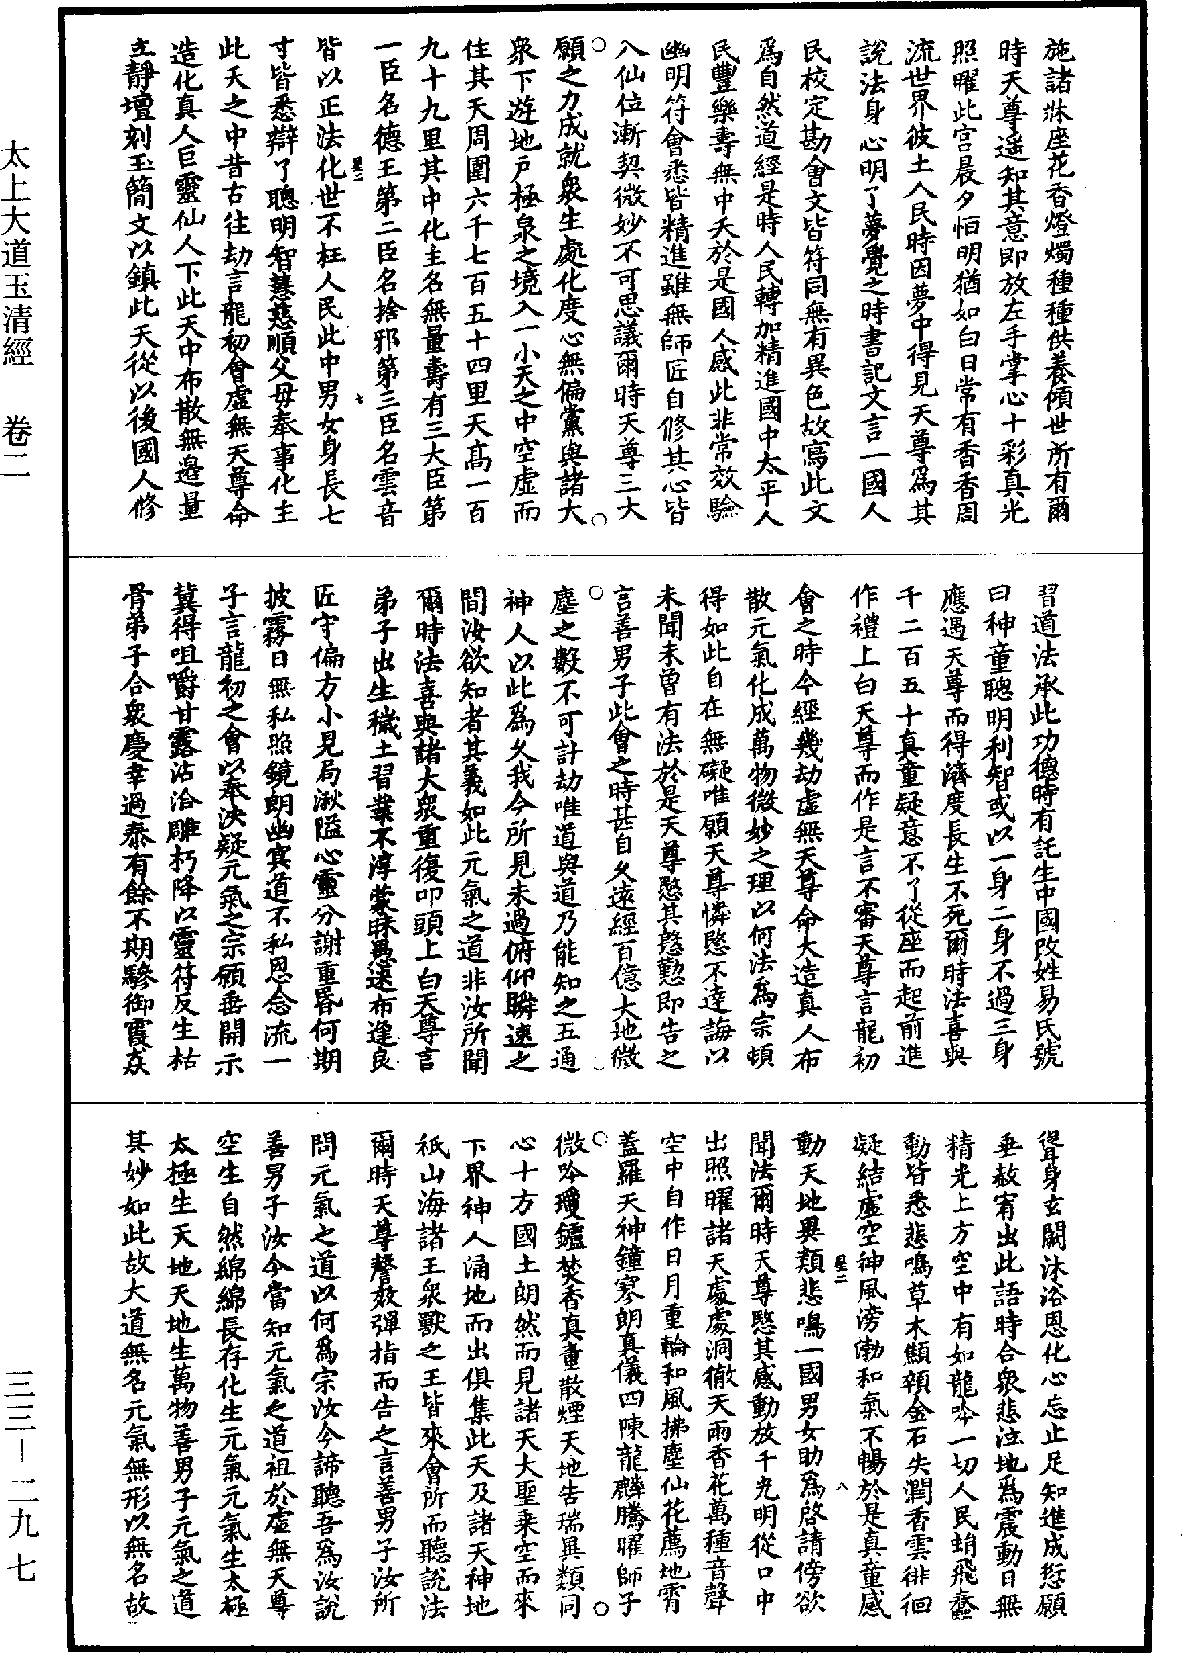 施諸牀座花香燈燭種種供養傾世所有爾
時天尊遥知其意即放左手掌心十彩真光
照曜此宫晨夕恒明猶如白日常有香香周
流世界彼土人民時因夢中得見天尊爲其
說法身心明了夢覺之時書記文言一國人
民校定勘會文皆符同無有異色故寫此文
爲自然道經是時人民轉加精進國中太平人
民豐樂壽無中夭於是國人感此非常效驗
幽明符會悉皆精進雖無師匠自修其心皆
入仙位漸契微妙不可思議爾時天尊三大
願之力成就衆生處化度心無偏黨與諸大
衆下遊地戸極泉之境入一小天之中空虚而
住其天周圍六千七百五十四里天髙一百
九十九里其中化主名無量壽有三大臣第
一臣名德王第二臣名捨邪第三臣名雲音
皆以正法化世不枉人民此中男女身長七
寸皆悉辯了聰明智慧慈順父母奉事化主
此天之中昔古往劫言龍初會虚無天尊命
造化真人巨靈仙人下此天中布散無邊量
立靜壇刻玉簡文以鎮此天從以後國人修
習道法承此功德時有託生中國改姓易氏號
曰种童聰明利智或以一身二身不過三身
應遇天尊而得濟度長生不死爾時法喜與
千二百五十真童疑意不了從座而起前進
作禮上白天尊而作是言不審天尊言龍初
會之時今經幾劫虚無天尊命大造真人布
散元氣化成萬物微妙之理以何法爲宗頓
得如此自在無礙唯願天尊憐愍不達誨以
未聞未曾有法於是天尊愍其慇懃即告之
言善男子此會之時甚自久遠經百億大地微
塵之數不可計劫唯道與道乃能知之五通
神人以此爲久我今所見未過俯仰瞬速之
間汝欲知者其義如此元氣之道非汝所聞
爾時法喜與諸大衆重復叩頭上白天尊言
弟子出生穢土習業不淳蒙昧愚速布逢良
匠守偏方小見局湫隘心靈分謝重昬何期
披霧日無私照鏡朗幽冥道不私恩念流一
子言龍初之會以奉決疑元氣之宗願垂開示
冀得咀嚼甘露沾洽雕朽降以靈符反生枯
骨弟子合衆慶幸過泰有餘不期驂御霞焱
聳身玄闕沐浴恩化心忘止足知進成愆願
垂赦宥出此語時合衆悲泣地爲震動日無
精光上方空中有如龍吟一切人民蜎飛蠢
動皆悉悲鳴草木顦顇金石失潤香雲徘徊
凝結虚空神風滂渤和氣不暢於是真童感
動天地異類悲鳴一國男女助爲啓請傍欲
聞法爾時天尊愍其感動放千光明從口中
出照曜諸天處處洞徹天雨香花萬種音聲
空中自作日月重輪和風拂塵仙花薦地霄
蓋羅天神鐘寥朗真儀四陳龍麟騰曜師子
微吟瓊鑪焚香真童散煙天地告瑞異類同
心十方國土朗然而見諸天大聖乘空而來
下界神人涌地而出俱集此天及諸天神地
祇山海諸王衆獸之王皆來會所而聽說法
爾時天尊謦欬彈指而告之言善男子汝所
問元氣之道以何爲宗汝今諦聽吾爲汝說
善男子汝今當知元氣之道祖於虚無天尊
空生自然綿綿長存化生元氣元氣生太極
太極生天地天地生萬物善男子元氣之道
其妙如此故大道無名元氣無形以無名故
太上大道玉清經 卷二
三三—二九七